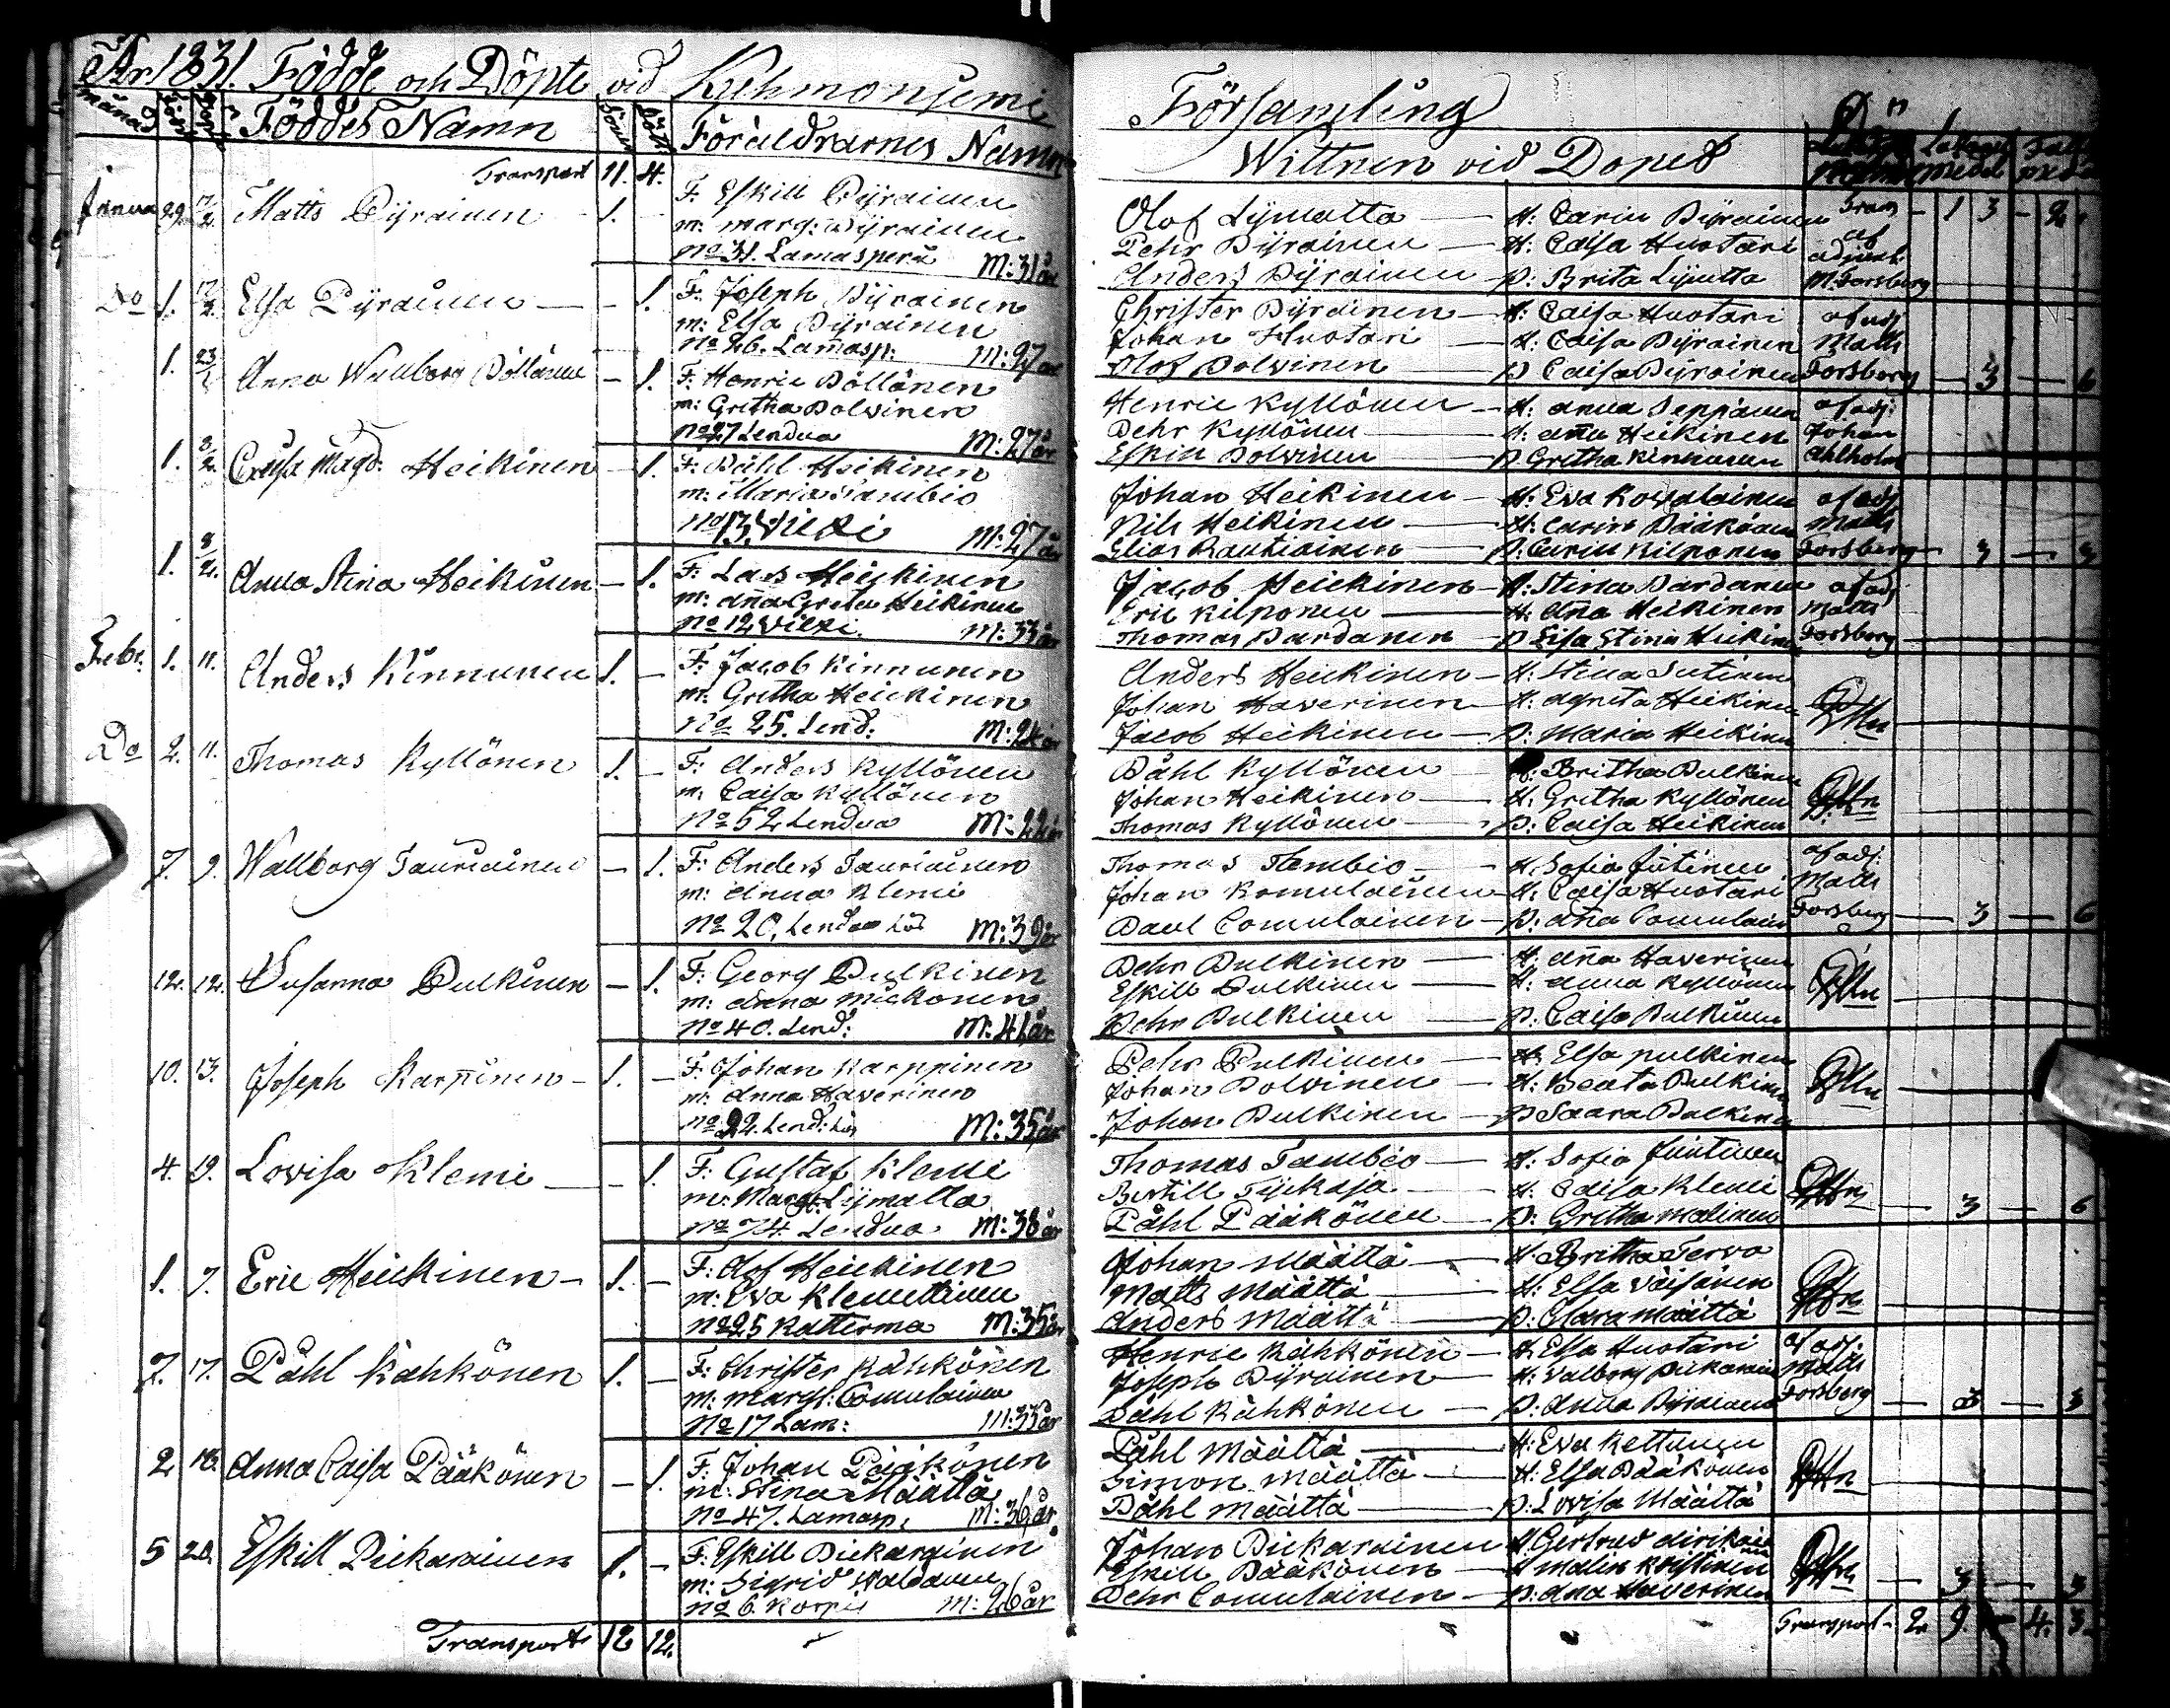 År 1831. Födde och Döpte vid Kuhmoniemi Församling
Månad Född Döpt Föddes Namn Söner Dött. Föräldrarnes Namn Wittnen vid Dopet
Transport 11. 4.
Janua 29 17/2 Matts Pÿrainen 1. – F. Eskill Pÿrainen Olof Lÿmatta — H: Carin Pÿrainen Fram – 1 3 – 2
m: marg: Pÿrainen Pehr Pÿrainen — H: Caisa Huotari af
No 31. Lamasperä M: 31 år Anders Pÿrainen — P: Brita Lÿmatta M. Forsberg
Do 1. 17/2 Elsa Pÿrainen — – 1. F: Joseph Pÿrainen Christer Pÿrainen — H: Caisa Huotari af adj
m: Elsa Pÿrainen Johan Huotari — H: Caisa Pÿrainen Matts
No 26. Lamasp: M: 27 år Olof Polvinen — P Caisa Pÿrainen Forsberg — 3 — 6
1. 23/2 Anna Wallborg Pöllänen – 1. F: Henric Pöllänen Henric Kyllönen — H: Anna Seppänen af adj:
m: Gretha Polvinen Pehr Kyllönen — H: Aña Heikinen Johan
No 27 Lendua M: 27 år Eskill Polvinen — P. Gretha Kinnunen Ahlholm
1. 8/2. Caisa Magd: Heikinen – 1. F: Påhl Heikinen Johan Heikinen — H: Eva Kovalainen af adj
m: Maria Tambio Nils Heikinen — H: Carin Pääkönen Matts
No 13. Viexi M: 27 år Elias Rautiainen — P: Carin Kilponen Forsberg — 3 — 3
1. 8/2. Anna Stina Heikinen – 1. F: Lars Heickinen Jacob Heickinen — H: Stina Pardanen af adj
m: Aña Greta Heikinen Eric Kilponen — H. Aña Heikinen Matts
No 12 Viexi M: 33 år Thomas Pardanen — P Lisa Stina Heikinen Forsberg —
Febr. 1. 11. Anders Kinnunen 1. – F: Jacob Kinnunen Anders Heickinen — H: Stina Sutinen
m: Gretha Heickinen Johan Haverinen — H: Agneta Heikinen
No 25. Lend: M: 24 år Jacob Heikinen — P: Maria Heikinen
Do 2. 11. Thomas Kyllönen 1. – F: Anders Kyllönen Påhl Kyllönen — H: Britha Pulkinen
m: Caisa Kyllönen Johan Heikinen — H: Gretha Kyllönen
No 52 Lendua M: 22 år Thomas Kyllönen — P: Caisa Heikinen
7. 9. Wallborg Tauriainen – 1. F: Anders Tauriainen Thomas Tambio — H. Sofia Juntinen af adj:
m: Anna Klemi Johan Komulainen — H: Caisa Huotari Matts
No 20. Lendua Lös M: 39 år Paul Comulainen — P: Aña Comulainen Forsberg — 3 — 6
12. 12. Susanna Pulkinen – 1. F: Georg Pulkinen Pehr Pulkinen — H: Aña Haverinen
m: Anna Mickonen Eskill Pulkinen — H: Anna Kyllönen
No 40. Lend: M: 41 år Pehr Pulkinen — P: Caisa Pulkinen
10. 13. Joseph Karppinen – 1. – F. Johan Karppinen Pehr Pulkinen — H: Elsa Pulkinen
m: Anna Haverinen Johan Polvinen — H: Beata Pulkinen
No 22. Lend: Lös M: 35 år Johan Pulkinen — P Saara Pulkinen
4. 19. Lovisa Klemi — – 1. F: Gustaf Klemi Thomas Tambio — H: Sofia Juntinen
m: Margt: Lÿmatta Bertill Tÿikaja — H. Caisa Klemi
No 74. Lendua M: 38 år Påhl Pääkönen — P: Gretha Malinen — 3 — 6
1. 7. Eric Heickinen – 1. – F: Olof Heickinen Johan Määttä — H. Britha Tervo
m: Eva Klemettinen Matts Määttä — H: Elsa Väisänen
No 25 Katterma M: 35 år Anders Määttä — P: Clara Määttä
7. 17. Påhl Kähkönen 1. – F: Christer Kähkönen Henric Kähkönen — H. Elsa Huotari af adj:
m: Margt: Comulainen Joseph Pÿrainen — H: Valborg Pickarainen Matts
No 17 Lam: M: 33 år Påhl Kähkönen — P: Anna Pÿrainen Forsberg — 3 — 3
2 18. Anna Caisa Pääkönen – 1. F: Johan Pääkönen Påhl Määttä — H: Eva Kettunen
m: Stina Määttä Simon Määttä — H: Elsa Pääkönen
No 47. Lamasp: M: 36 år. Påhl Määttä — P: Lovisa Määttä
5 20. Eskill Pickarainen 1. – F: Eskill Pickarainen Johan Pickarainen H Gertrud
m: Sigrid Eskill Pääkönen — H Malin
No 6. Korpis M: 26 år Pehr Comulainen — P: Aña Haverinen — 3 — 3
Transport 12 12. Transport – 2. 9. – 4. 3.